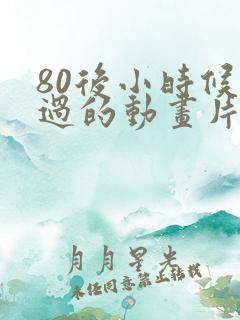 80後小時候
過的動畫片
月月星光
未經同意禁止轉載